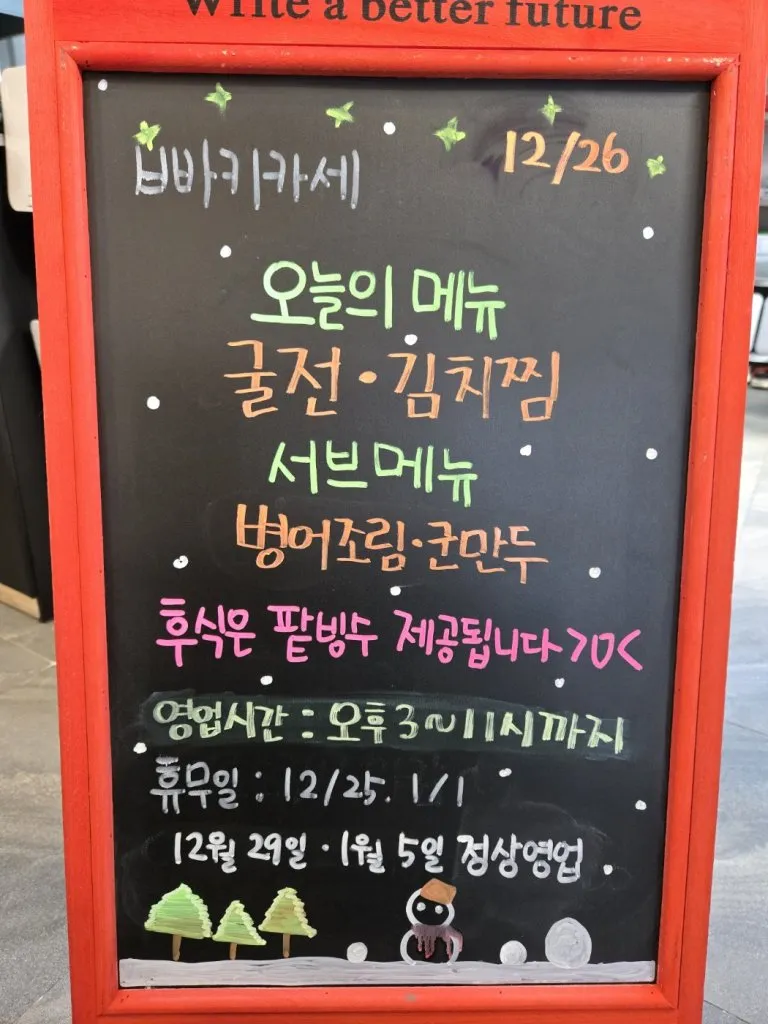 Write a better future
빠키카세 12/26
오늘의 메뉴
굴전·김치찜
서브메뉴
병어조림·군만두
후식은 팥빙수 제공됩니다>ㅁ<
영업시간 : 오후3~11시까지
휴무일 : 12/25. 1/1
12월 29일 · 1월 5일 정상영업